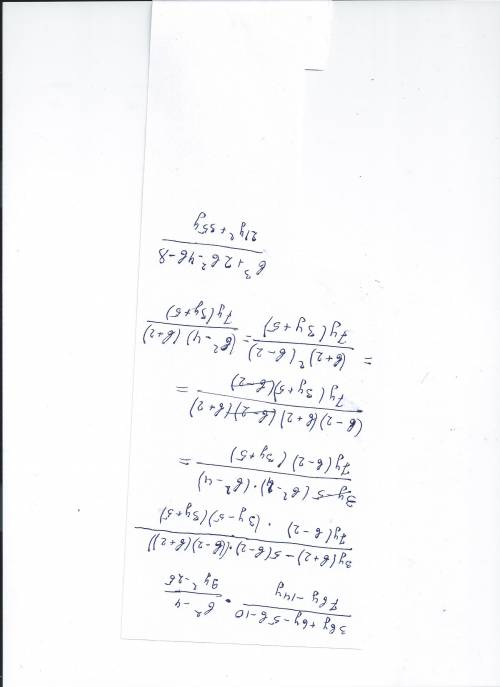 3by + 6y - 5b - 10 · b² - 4
7by - 14y 9y² - 25
3y(b+2) - 5(b-2)·(b-2)(b+2))
7y(b-2) · (3y-5)(3y+5)
3y-5 (b²-4)·(b²-4) =
7y(b-2) (3y+5)
(b-2)(b+2)(b-2)(b+2) =
7y(3y+5)(b-2)
= (b+2)²(b-2) = (b²-4)(b+2)
7y(3y+5) 7y(3y+5)
b³ + 2b² - 4b - 8
21y² + 35y